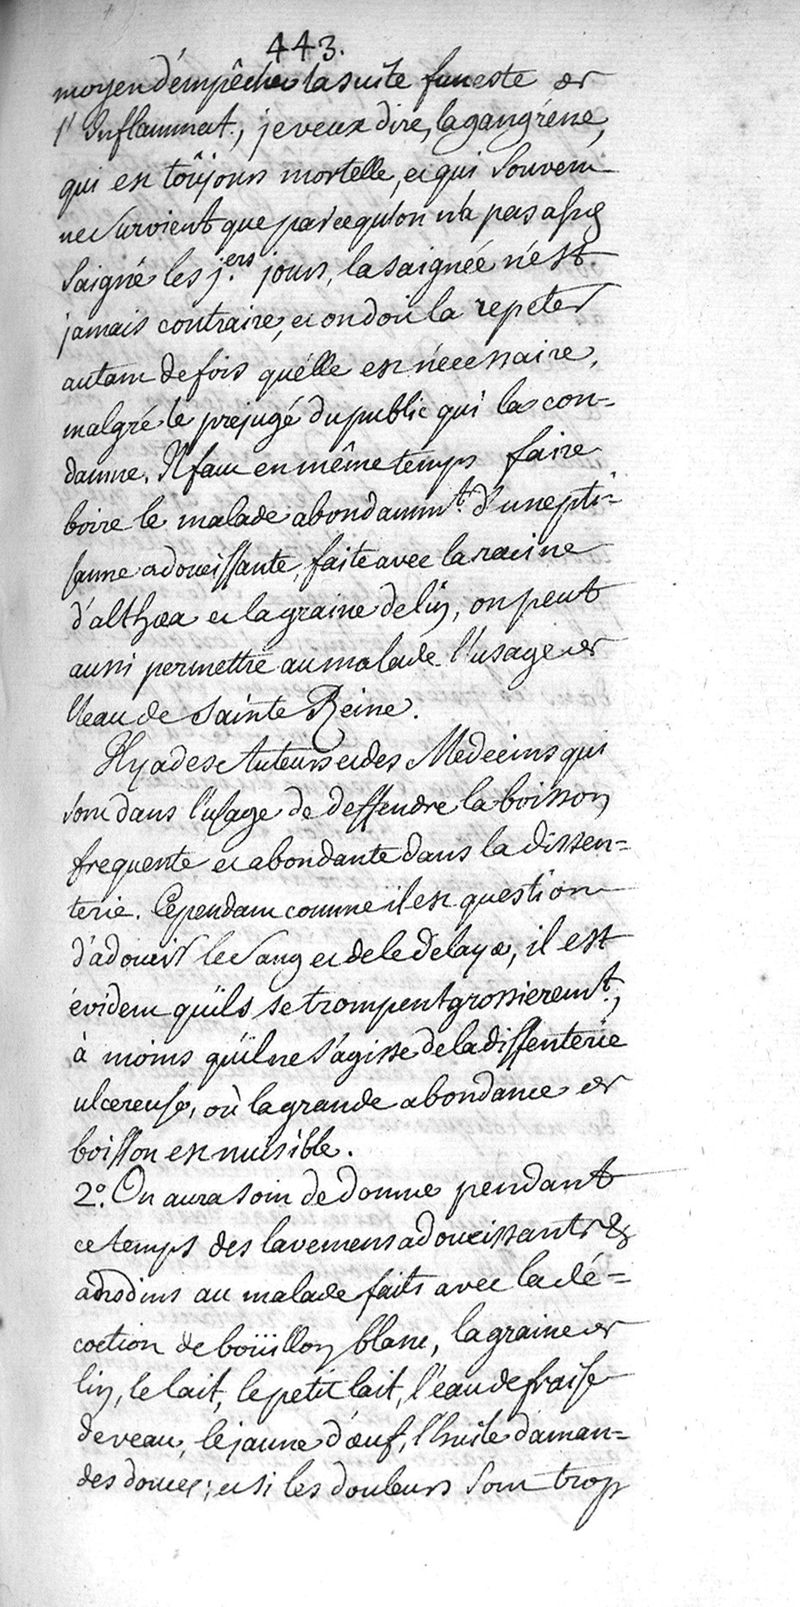 443.
moyen d'émpêcher la suite funeste de
l'Inflammat., je veux dire, la gangréne,
qui est toûjours mortelle, et qui souvent
ne survient que parcequ'on n'a pas assez
saigné les j.ers jours, la saignée n'est
jamais contraire, et on doit la repeter
autant de fois qu'élle est nécessaire,
malgré le préjugé du public qui la con=
damne. Il faut en même temps faire
boire le malade abondamm.t d'une pti=
sanne adoucissante, faite avec la racine
d'althæa et la graine de lin, on peut
aussi permettre au malade l'usage de
l'eau de Sainte Reine.
Il y a des Auteurs et des Medecins qui
sont dans l'usage de deffendre la boisson
frequente et abondante dans la dissen=
terie. Cependant comme il est question
d'adoucir le sang et de le delayer, il est
évident qu'ils se trompent grossierem.t,
à moins qu'il ne s'agisse de la dissenterie
ulcereuse, où la grande abondance de
boisson est nuisible.
2.o On aura soin de donner pendant
ce temps des lavemens adoucissants &
anodins au malade faits avec la dé=
coction de boüillon blanc, la graine de
lin, le lait, le petit lait, l'eau de fraise
de veau, le jaune d'œuf, l'huile d'aman=
des douces; et si les douleurs sont trop